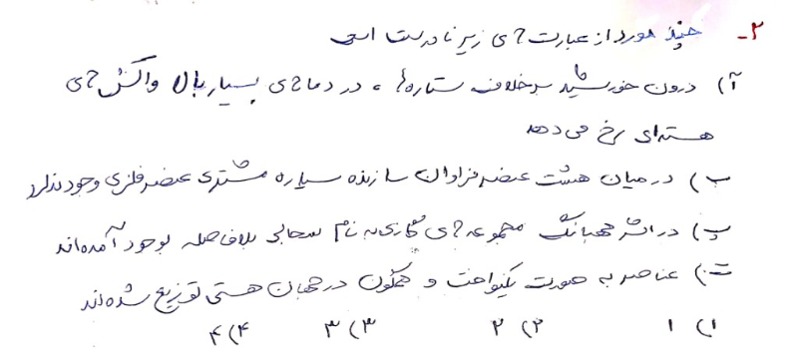 ۲- چند مورد از عبارت های زیر نادرست است
آ) درون خورشید برخلاف ستاره ها ، در دمای بسیار بالا واکنش های
هسته ای رخ می دهد
ب) در میان هشت عنصر فراوان سازنده سیاره مشتری عنصر فلزی وجود ندارد
پ) در اثر مهبانگ مجموعه های گازی به نام سحابی بلافاصله بوجود آمده اند
ت) عناصر به صورت یکنواخت و همگون در جهان هستی توزیع شده اند
۱) ۱ ۲) ۲ ۳) ۳ ۴) ۴